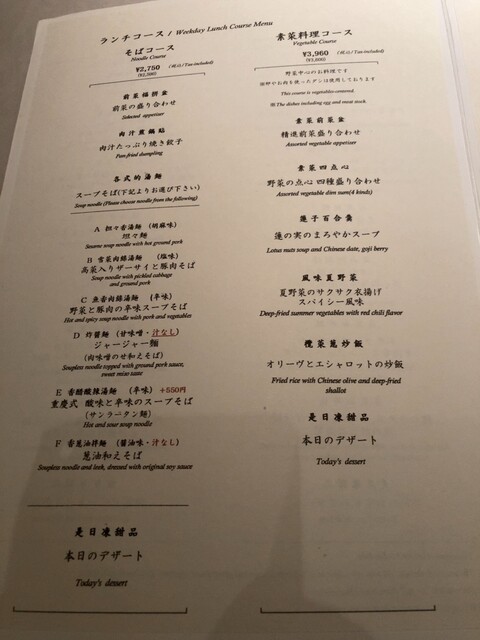 ランチコース / Weekday Lunch Course Menu
そばコース
Noodle Course
¥2,750 (税込/Tax-included)
(¥2,500)
前菜
前菜の盛り合わせ
Selected appetizer
肉汁煎鍋貼
肉汁たっぷり焼き餃子
Pan-fried dumpling
各式的湯麺
スープそば(下記よりお選び下さい)
Soup noodle (Please choose noodle from the following)
A 担々香湯麺 (胡麻味)
坦々麺
Sesame soup noodle with hot ground pork
B 雪菜肉絲湯麺 (塩味)
高菜入りザーサイと豚肉そば
Soup noodle with pickled cabbage
and ground pork
C 魚香肉絲湯麺 (辛味)
野菜と豚肉の辛味スープそば
Hot and spicy soup noodle with pork and vegetables
D 炸醬麺 (甘味噌・汁なし)
ジャージャー麺
(肉味噌のせ和えそば)
Soupless noodle topped with ground pork sauce,
sweet miso taste
E 香醋酸辣湯麺 (辛味) +550円
重慶式 酸味と辛味のスープそば
(サンラータン麺)
Hot and sour soup noodle
F 香葱油拌麺 (醤油味・汁なし)
葱油和えそば
Soupless noodle and leek, dressed with original soy sauce
是日凍甜品
本日のデザート
Today's dessert
素菜料理コース
Vegetable Course
¥3,960 (税込/Tax-included)
(¥3,600)
野菜中心のお料理です
※卵やお肉を使ったダシは使用しております
This course is vegetables-centered.
※The dishes including egg and meat stock.
素菜前菜盆
精進前菜盛り合わせ
Assorted vegetable appetizer
素菜四点心
野菜の点心 四種盛り合わせ
Assorted vegetable dim sum(4 kinds)
蓮子百合羹
蓮の実のまろやかスープ
Lotus nuts soup and Chinese date, goji berry
風味夏野菜
夏野菜のサクサク衣揚げ
スパイシー風味
Deep-fried summer vegetables with red chili flavor
欖菜葱炒飯
オリーヴとエシャロットの炒飯
Fried rice with Chinese olive and deep-fried
shallot
是日凍甜品
本日のデザート
Today's dessert